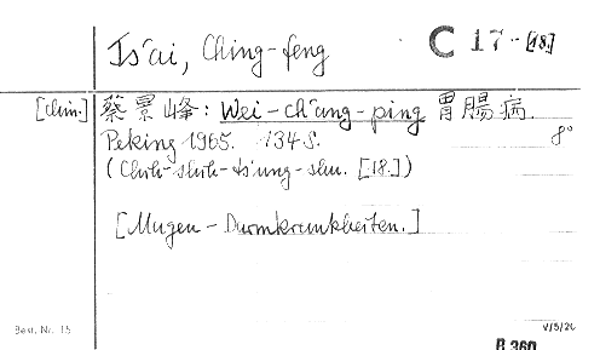 Ts'ai, Ching-feng C 17-[18.]
[chin.] 蔡景峰: Wei-ch'ang-ping 胃腸病.
Peking 1965. 134 S. 8°
(Chih-shih-ts'ung-shu. [18.])
[Magen-Darmkrankheiten.]
Best. Nr. 15 V/5/20
B 360